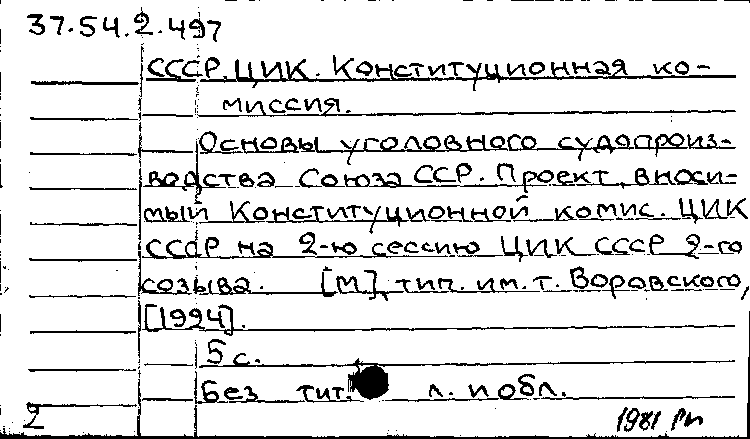 37.54.2.497
СССР. ЦИК. Конституционная ко-
миссия.
Основы уголовного судопроиз-
водства Союза ССР. Проект, вноси-
мый Конституционной комис. ЦИК
СССР на 2-ю сессию ЦИК СССР 2-го
созыва. [М], тип. им. т. Воровского,
[1924].
5 с.
Без тит. л. и обл.
2 1981